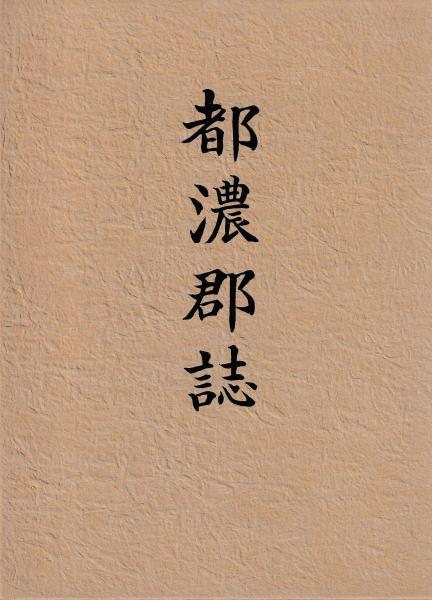 都濃郡誌